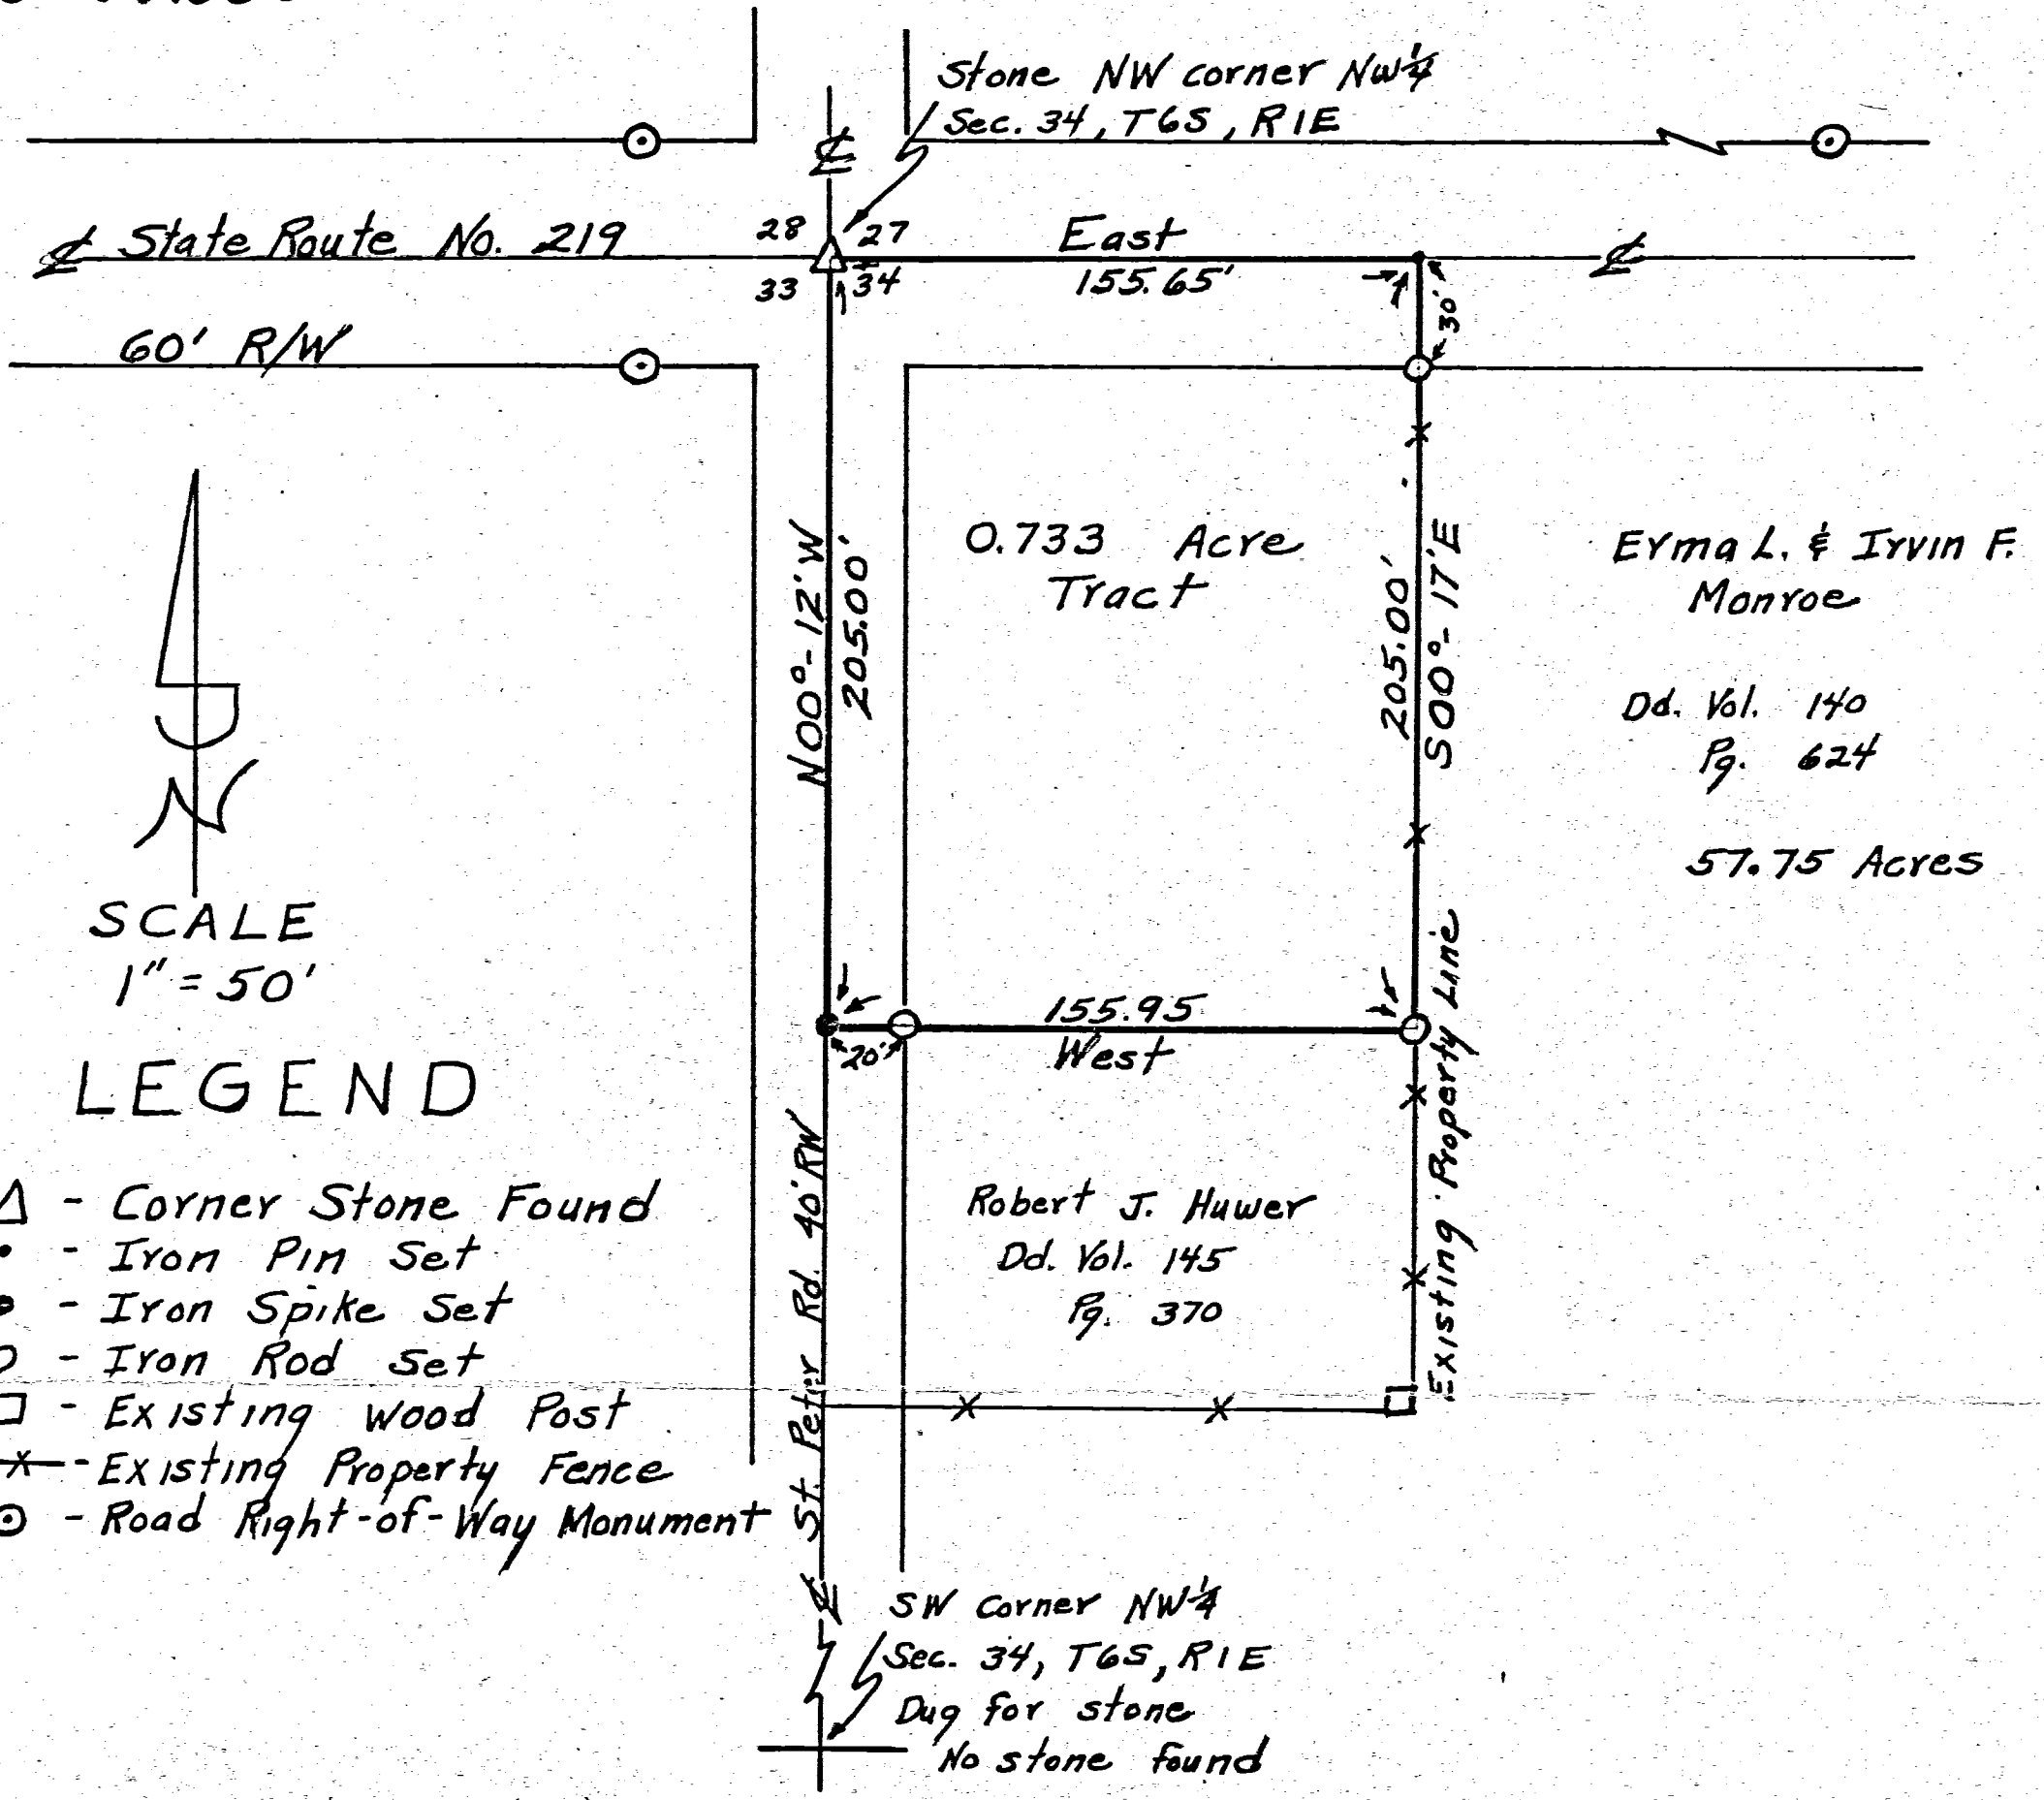 Stone NW corner NW 1/4
Sec. 34, T6S, R1E
℄
℄ State Route No. 219
28
27
33
34
East
155.65'
℄
30'
60' R/W
N00°-12'W
205.00'
0.733 Acre
Tract
205.00'
S00°-17'E
Erma L. & Irvin F.
Monroe
Dd. Vol. 140
Pg. 624
57.75 Acres
N
SCALE
1" = 50'
155.95
West
20'
Existing Property Line
LEGEND
△ - Corner Stone Found
- Iron Pin Set
- Iron Spike Set
- Iron Rod Set
- Existing Wood Post
x - Existing Property Fence
- Road Right-of-Way Monument
St. Peter Rd. 40' RW
℄
Robert J. Huwer
Dd. Vol. 145
Pg. 370
SW Corner NW 1/4
Sec. 34, T6S, R1E
Dug for stone
No stone found